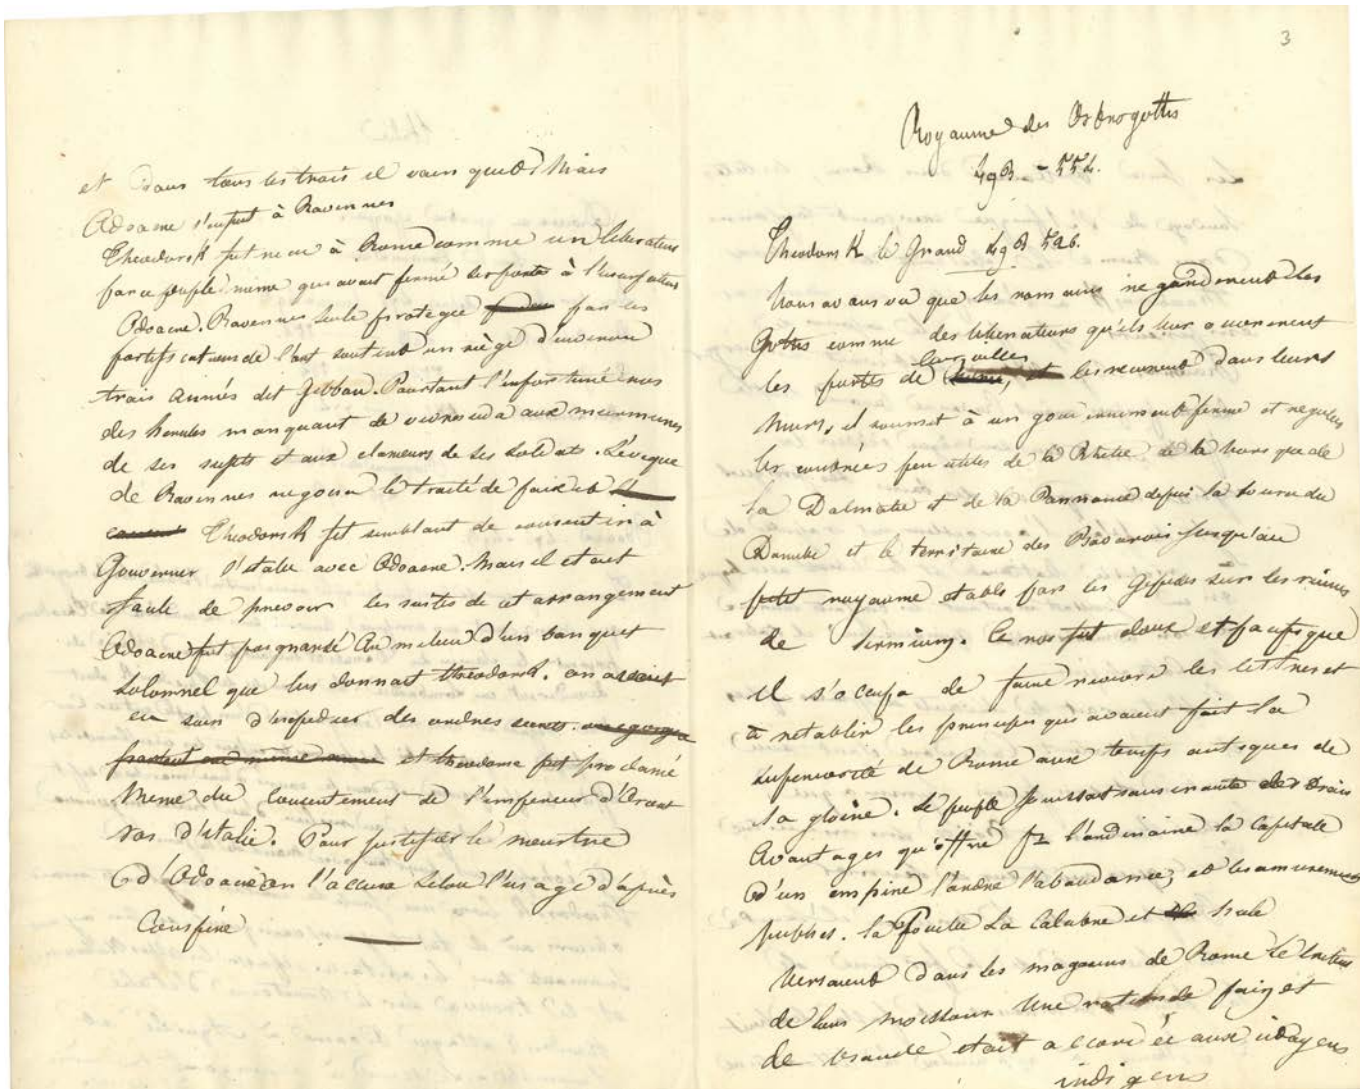 et dans tous les trois il vainquit Mais
Odoacre s'enfuit à Ravennes
Theodorik fut recu à Rome comme un liberateur
par ce peuple meme qui avait fermé ses portes à l'usurpateur
Odoacre. Ravennes seule protegée par les
fortifications de l'art soutint un siège d'environ
trois années dit Gibbon. Pourtant l'infortuné roi
des herules manquant de vivres ceda aux murmures
de ses sujets et aux clameurs de ses soldats. L'éveque
de Ravennes negocia le traité de paix et
Theodorik fit semblant de consentir à
Gouverner l'italie avec Odoacre. Mais il etait
facile de prevoir les suites de cet arrangement
Odoacre fut poignardé au milieu d'un banquet
solomnel que lui donnait theodorik. on
eu soin d'expedier des ordres secrets.
et theodoric fut proclamé
meme du consentement de l'empereur d'Orient
roi d'italie. Pour justifier le meurtre
d'Odoacre on l'accusa selon l'usage d'après
Conspiré
3
Royaume des Ostrogoths
493 - 554.
Theodorik le Grand 493 526.
Nous avons vu que les romains regardoient les
Goths comme des liberateurs qu'ils leur ouvrirent
les portes de leur villes, et les reçurent dans leurs
murs, il soumit à un gouvernement ferme et regulier
les contrées peu utiles de la Rhetie de la Norique de
la Dalmatie et de la Pannonie depuis la source du
Danube et le territoire des Bavarois jusqu'au
petit royaume etabli par les Gepides sur les ruines
de Sirmium. Ce roi fut doux et pacifique
il s'occupa de faire revivre les lettres et
à retablir les principes qui avaient fait la
superiorité de Rome aux temps antiques de
sa gloire. Le peuple jouissait sans crainte des vrais
avantages qu'offre pr l'ordinaire la capitale
d'un empire l'ordre l'abondance, et les amusements
publics. la Pouille La Calabre et
versaient dans les magasins de Rome le tribut
de leurs moissons Une ration de pain et
de viande etait accordée aux citoyens
indigens